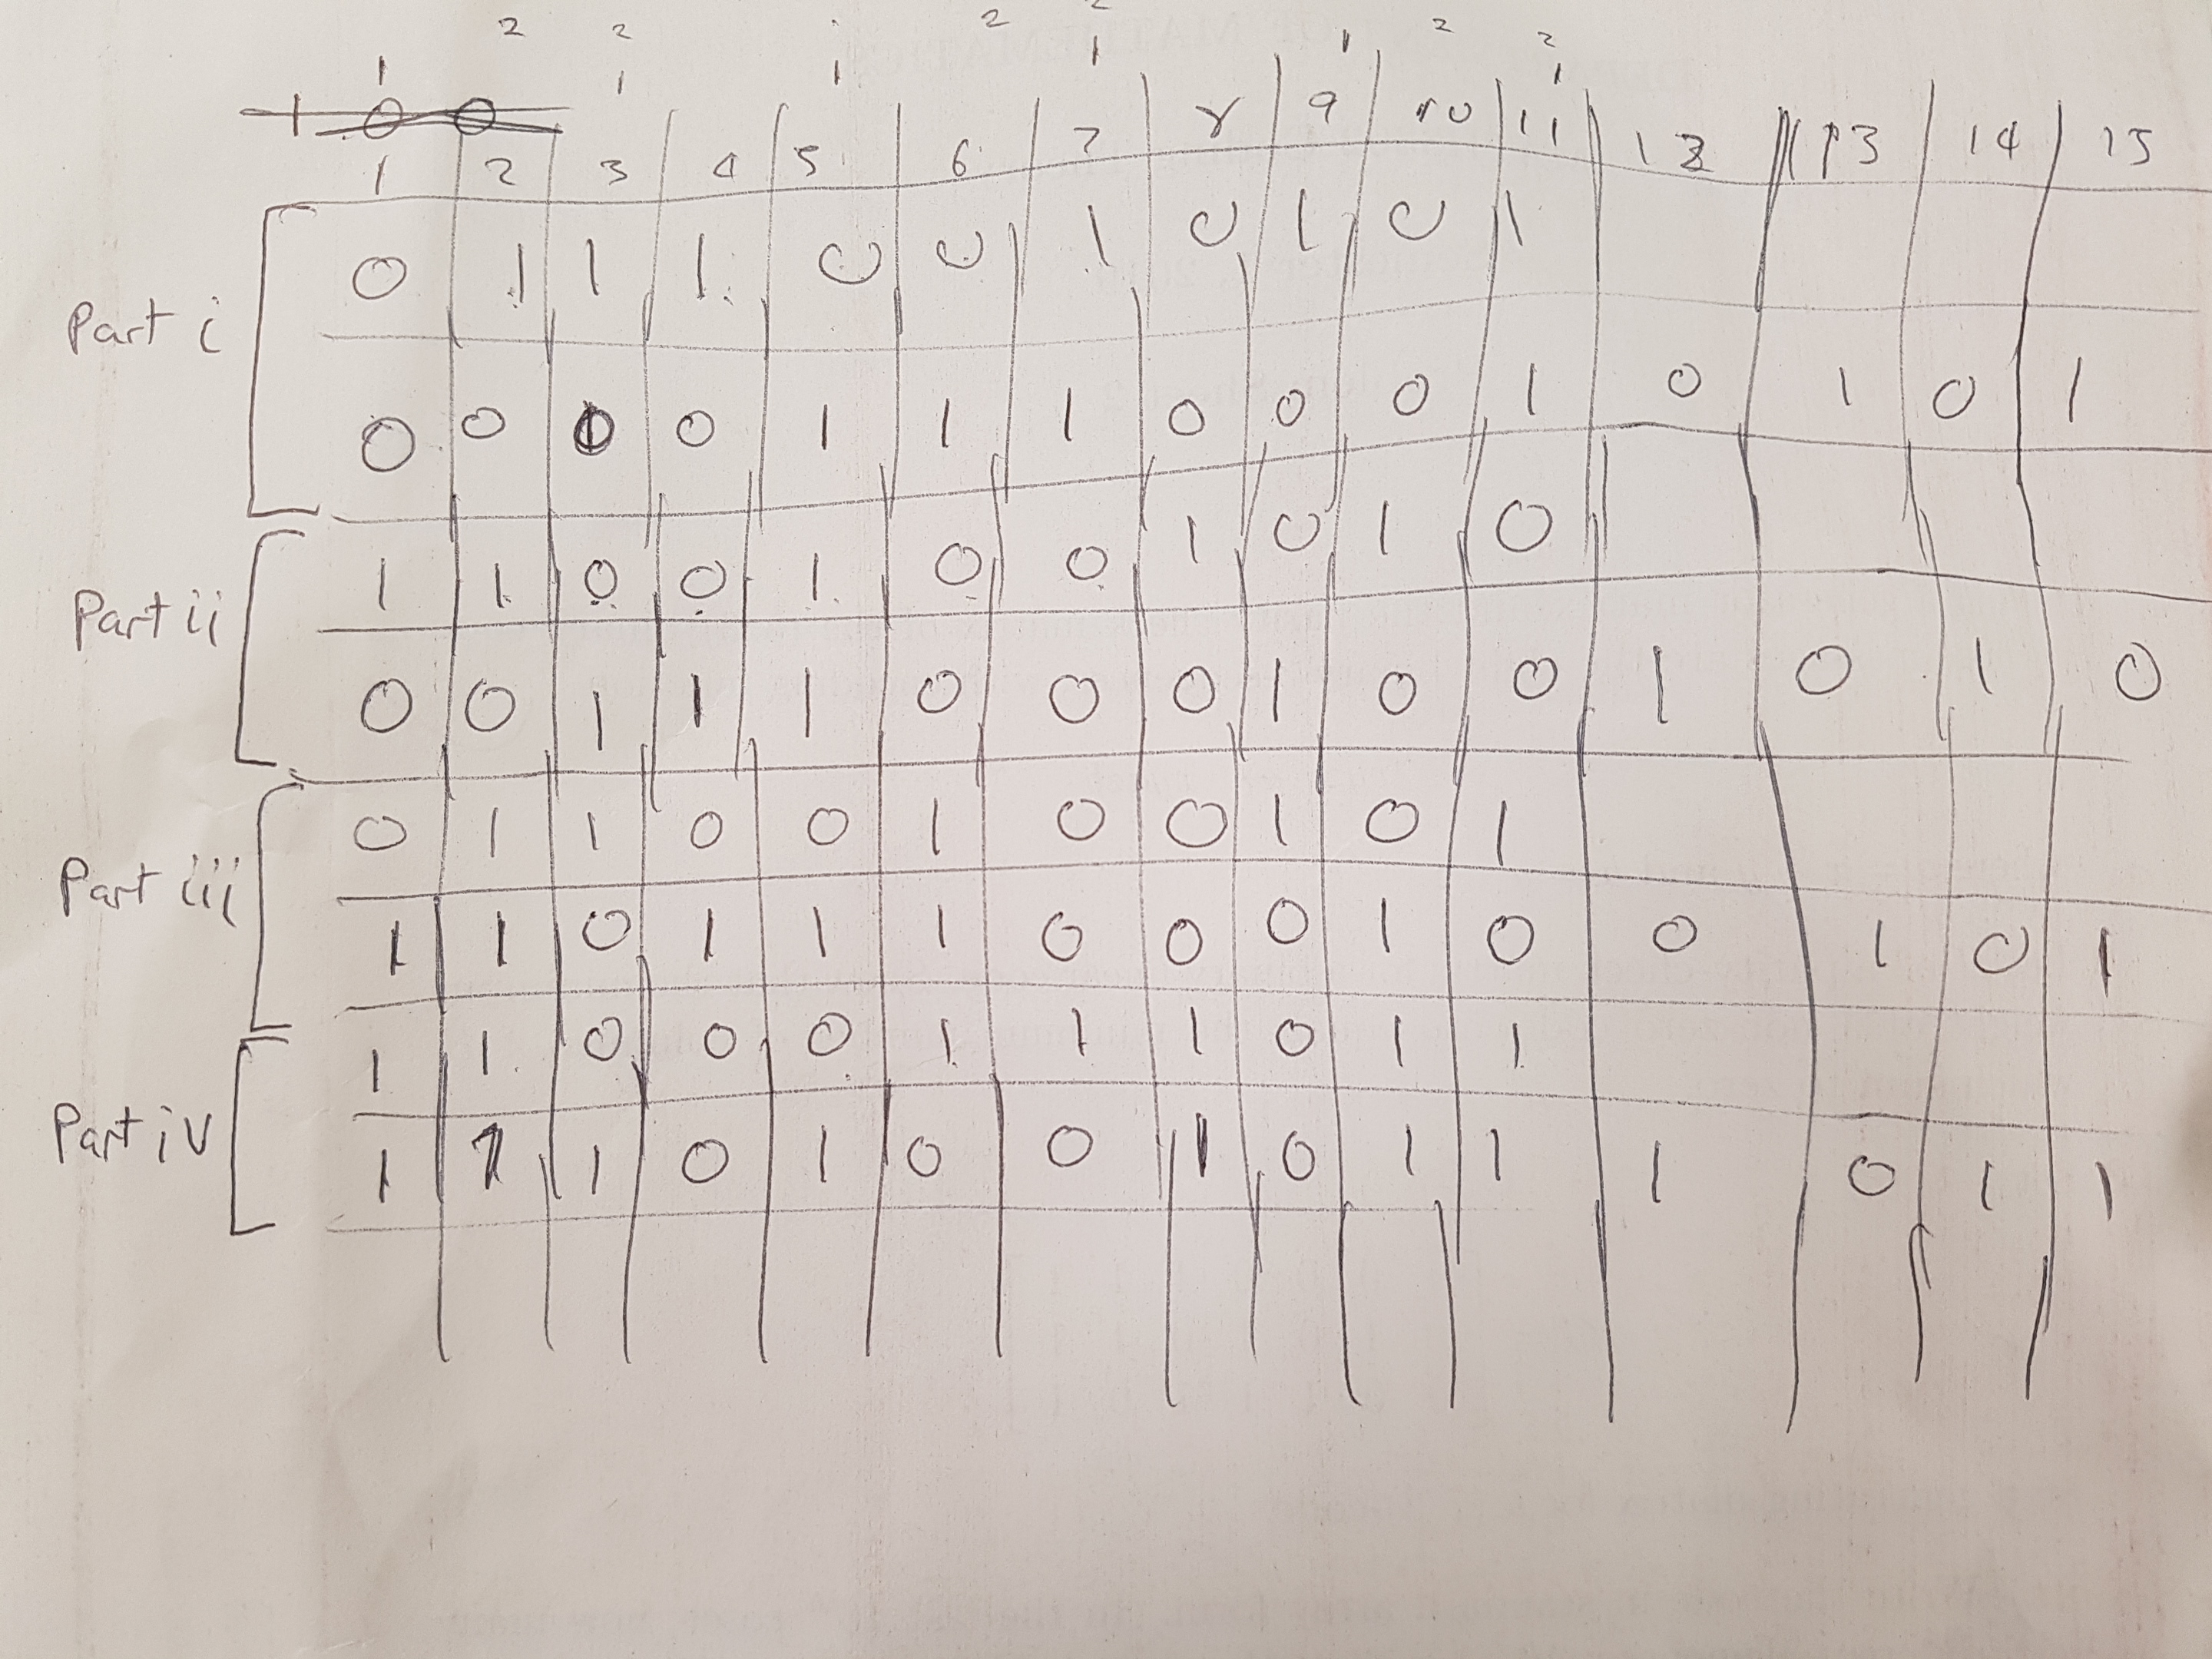 2 2 2 2 2 2
1 1 1 1 1 1
1 2 3 4 5 6 7 8 9 10 11 12 13 14 15
Part i
0 1 1 1 0 0 1 0 1 0 1
0 0 0 1 1 1 0 0 0 1 0 1 0 1
Part ii
1 1 0 0 1 0 0 1 0 1 0
0 0 1 1 1 0 0 0 1 0 0 1 0 1 0
Part iii
0 1 1 0 0 1 0 0 1 0 1
1 1 0 1 1 1 0 0 0 1 0 0 1 0 1
Part iv
1 1 0 0 0 1 1 1 0 1 1
1 1 1 0 1 0 0 1 0 1 1 1 0 1 1